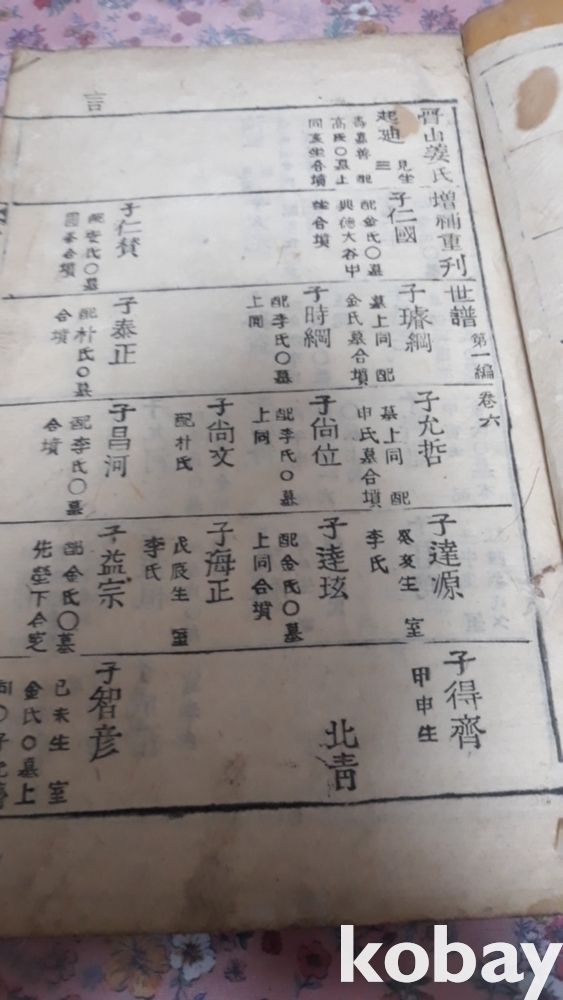 言
晉山姜氏增補重刊世譜 第一編 卷六
起廸
見生
三
壽嘉善 配
高氏〇墓上
同亥坐合墳
子仁國
配金氏〇墓
興德大谷中
合墳
子仁賛
氏〇墓
合墳
子璿綱
墓上同 配
金氏墓合墳
子時綱
配李氏〇墓
上同
子泰正
配朴氏〇墓
合墳
子允哲
墓上同 配
申氏墓合墳
子尙位
配李氏〇墓
上同
子尙文
配朴氏
子昌河
配李氏〇墓
合墳
子達源
癸亥生 室
李氏
子逵玹
配金氏〇墓
上同合墳
子海正
戊辰生 室
李氏
子益宗
配金氏〇墓
先塋下合窆
子得齊
甲申生
北靑
子智彦
己未生 室
金氏〇墓上
同〇子
kobay